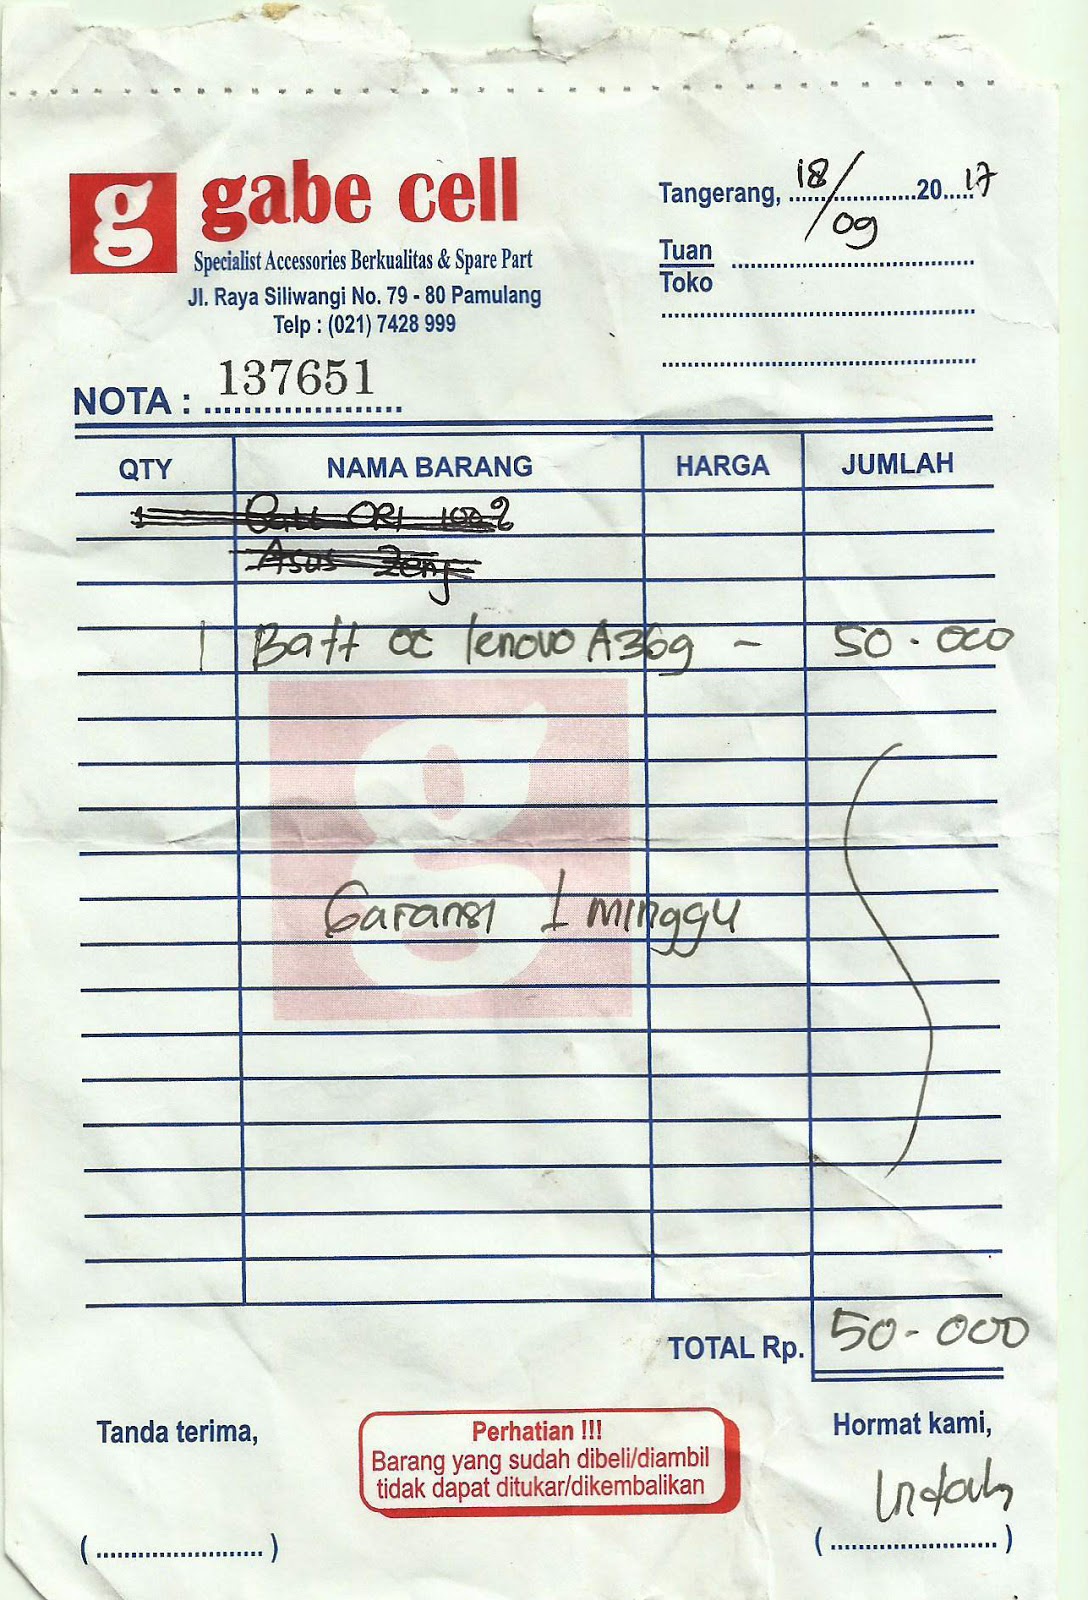 g gabe cell
Specialist Accessories Berkualitas & Spare Part
Jl. Raya Siliwangi No. 79 - 80 Pamulang
Telp : (021) 7428 999
Tangerang, 18/09 2017
Tuan
Toko
NOTA : 137651
QTY NAMA BARANG HARGA JUMLAH
1 Batt ORI 100%
Asus
1 Batt OC lenovo A369 - 50.000
g
Garansi 1 minggu
TOTAL Rp. 50-000
Tanda terima,
Perhatian !!!
Barang yang sudah dibeli/diambil
tidak dapat ditukar/dikembalikan
Hormat kami,
(....................) (....................)